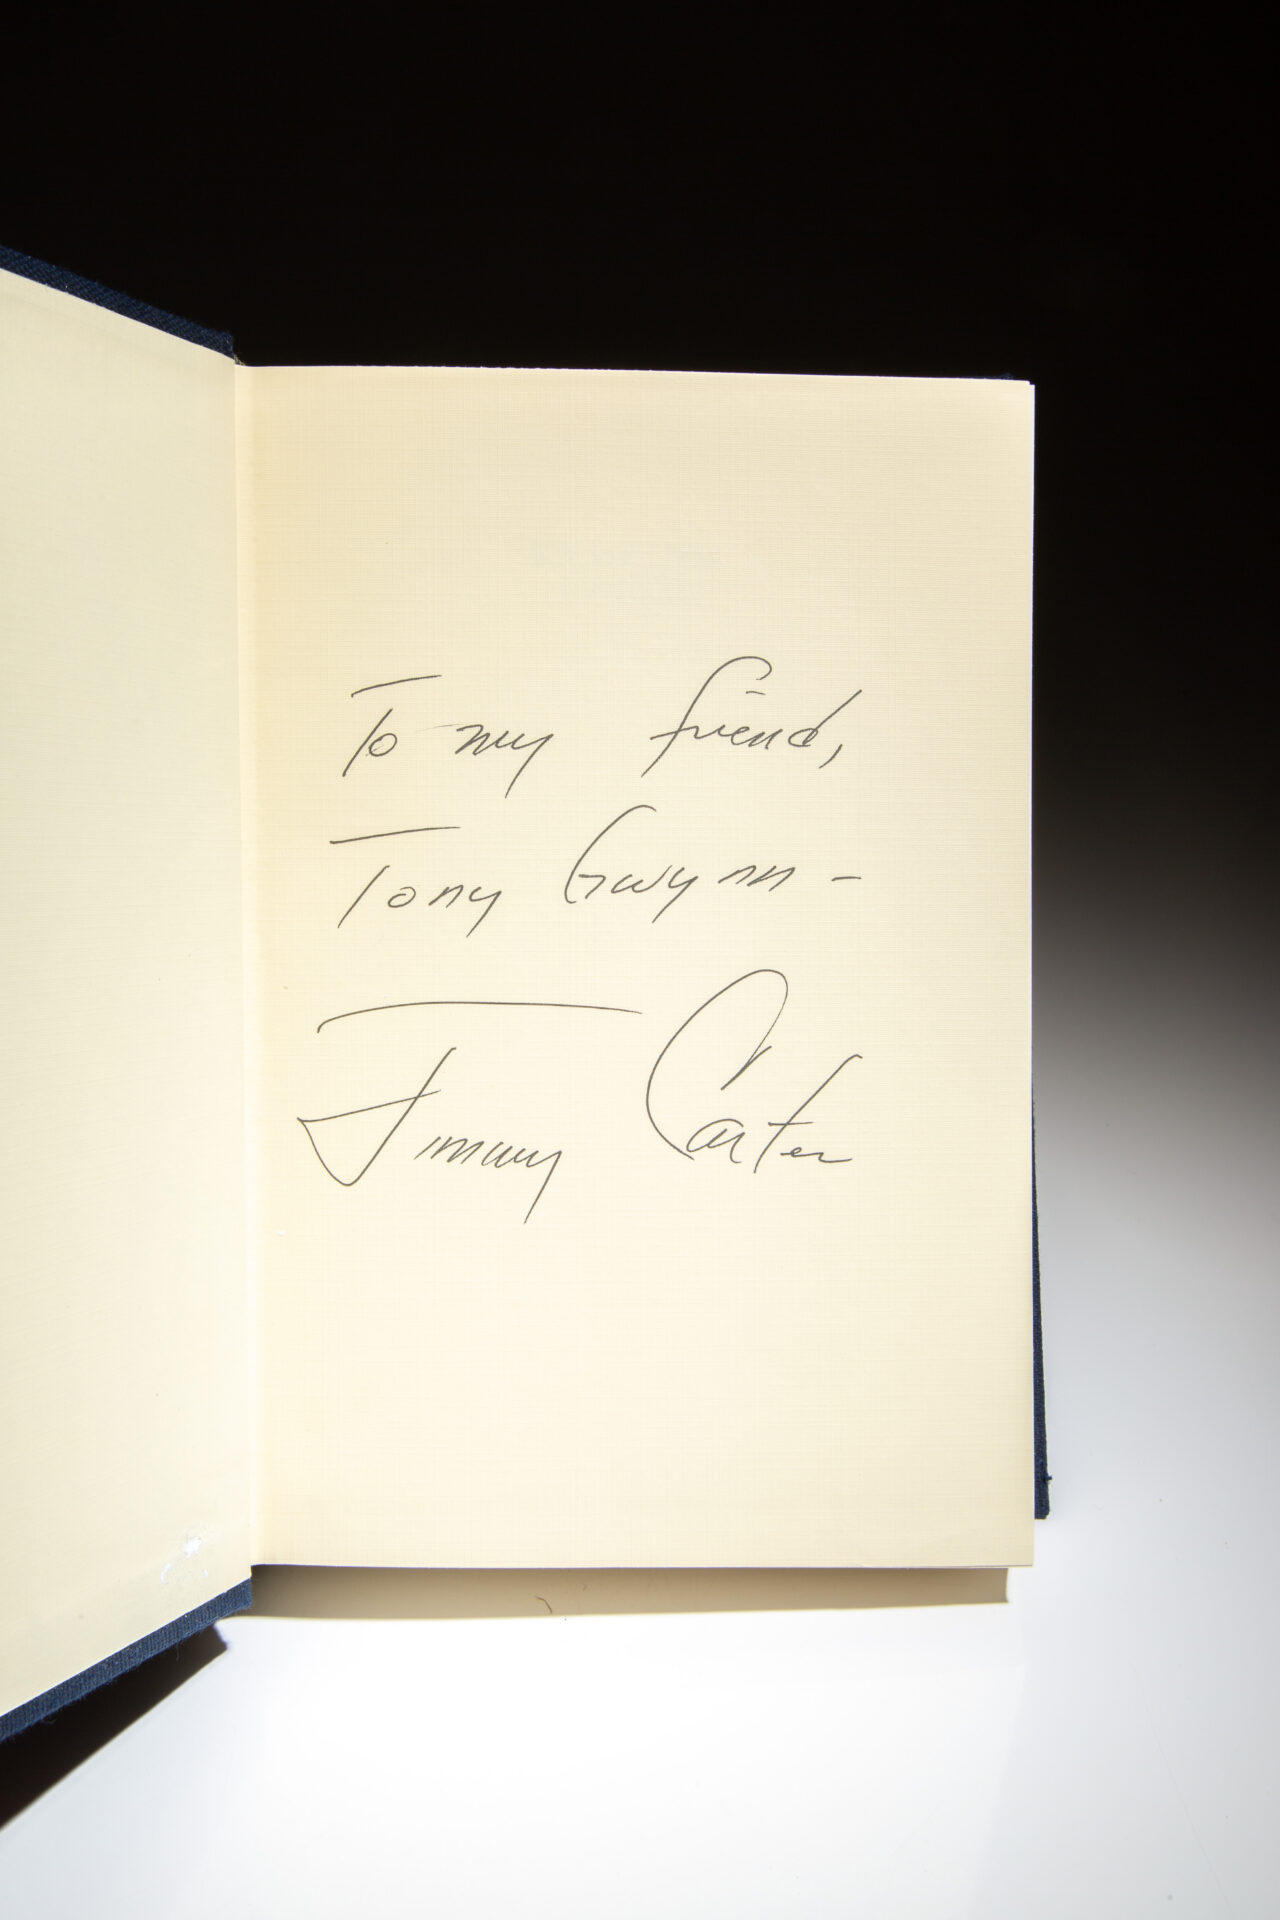 To my friend,
Tony Gwynn -
Jimmy Carter